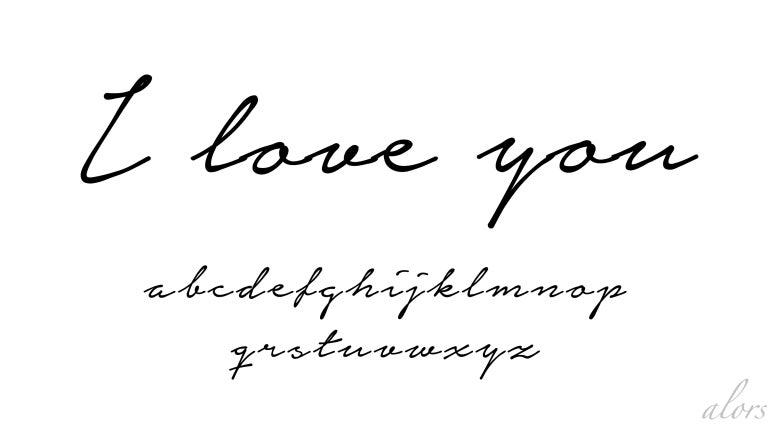 I love you
abcdefghijklmnop
qrstuvwxyz
alors